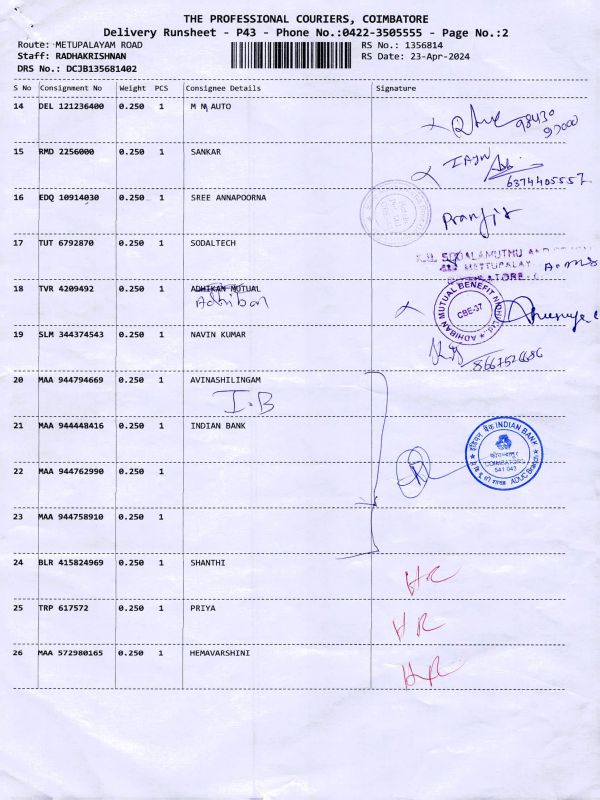 THE PROFESSIONAL COURIERS, COIMBATORE
Delivery Runsheet - P43 - Phone No.:0422-3505555 - Page No.:2
Route: METUPALAYAM ROAD RS No.: 1356814
Staff: RADHAKRISHNAN RS Date: 23-Apr-2024
DRS No.: DCJB135681402
S No Consignment No Weight PCS Consignee Details Signature
14 DEL 121236400 0.250 1 M M AUTO
98430
15 RMD 2256000 0.250 1 SANKAR
6374405557
16 EDQ 10914030 0.250 1 SREE ANNAPOORNA
Pranjit
17 TUT 6792870 0.250 1 SODALTECH
18 TVR 4209492 0.250 1 ADHIKAM MUTUAL
Adhiban
ADHIBAN MUTUAL BENEFIT NIDHI LTD.
CBE-37
19 SLM 344374543 0.250 1 NAVIN KUMAR
8667526686
20 MAA 944794669 0.250 1 AVINASHILINGAM
I.B
21 MAA 944448416 0.250 1 INDIAN BANK
इंडियन बैंक INDIAN BANK
कोयम्बत्तूर
COIMBATORE
641 043
ADUC Branch
22 MAA 944762990 0.250 1
23 MAA 944758910 0.250 1
24 BLR 415824969 0.250 1 SHANTHI
HR
25 TRP 617572 0.250 1 PRIYA
HR
26 MAA 572980165 0.250 1 HEMAVARSHINI
HR